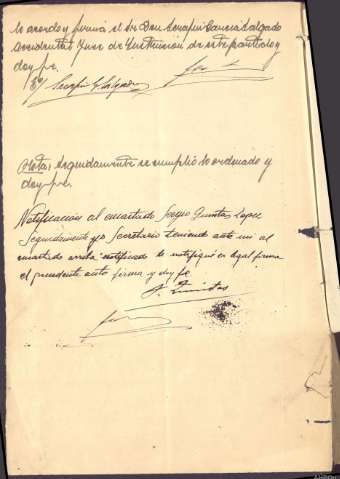 lo acordo y firma el Sr Don Serafin Garcia Salgado
accidental Juez de Instruccion de este partido y
doy fe.
Serafin G Salgado
Nota, Seguidamente se cumplió lo ordenado y
doy fe.
Notificacion al encartado Sergio Quintas Lopez
Seguidamente yo Secretario teniendo ante mi al
encartado arriba notificado le notifiqué en legal forma
el precedente auto firma y doy fe
S. Quintas